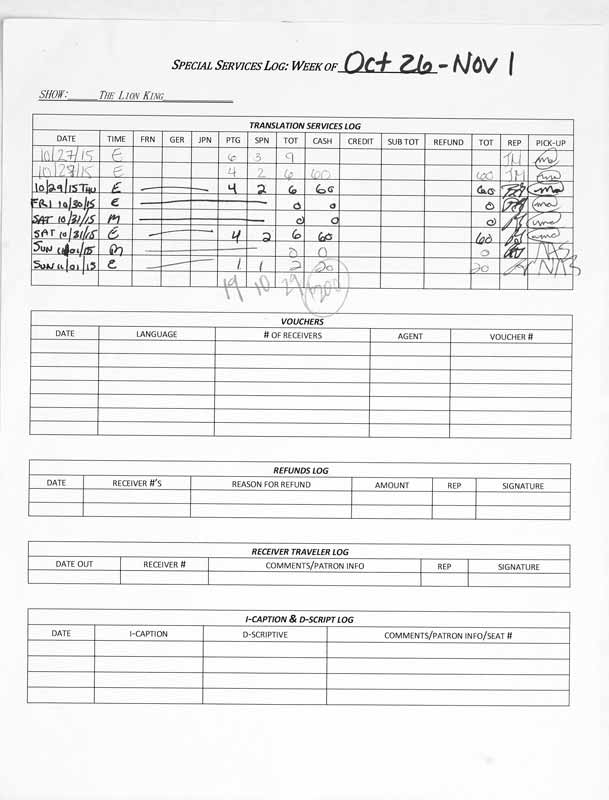 SPECIAL SERVICES LOG: WEEK OF Oct 26 - Nov 1
SHOW: THE LION KING
TRANSLATION SERVICES LOG
DATE TIME FRN GER JPN PTG SPN TOT CASH CREDIT SUB TOT REFUND TOT REP PICK-UP
10/27/15 E 6 3 9 JM
10/28/15 E 4 2 6 60 60 JM
10/29/15 THU E 4 2 6 60 60
FRI 10/30/15 E 0 0 0
SAT 10/31/15 M 0 0 0
SAT 10/31/15 E 4 2 6 60 60
SUN 11/01/15 M 0 0 0
SUN 11/01/15 E 1 1 2 20 20
19 10 29
VOUCHERS
DATE LANGUAGE # OF RECEIVERS AGENT VOUCHER #
REFUNDS LOG
DATE RECEIVER #'S REASON FOR REFUND AMOUNT REP SIGNATURE
RECEIVER TRAVELER LOG
DATE OUT RECEIVER # COMMENTS/PATRON INFO REP SIGNATURE
I-CAPTION & D-SCRIPT LOG
DATE I-CAPTION D-SCRIPTIVE COMMENTS/PATRON INFO/SEAT #